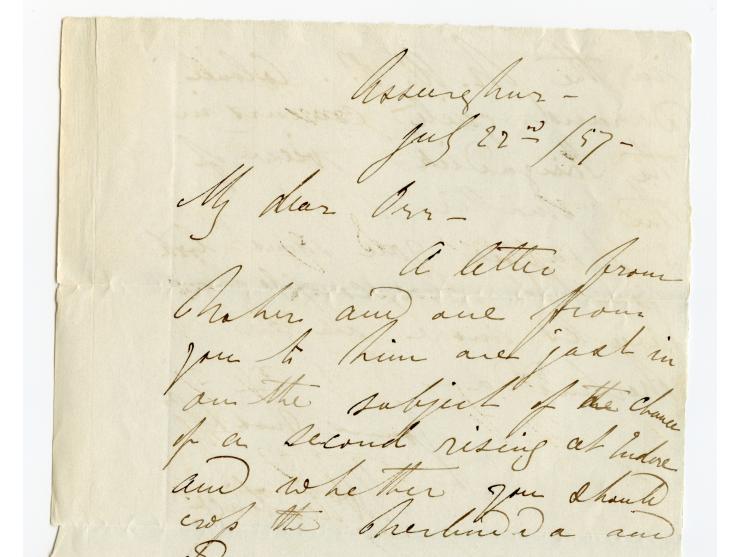 Asseerghur -
July 22nd /57 -
My dear Orr -
A letter from
and one from
you to him are just in
on the subject of the chance
of a second rising at Indore
and whether you should
cross the Nerbudda and